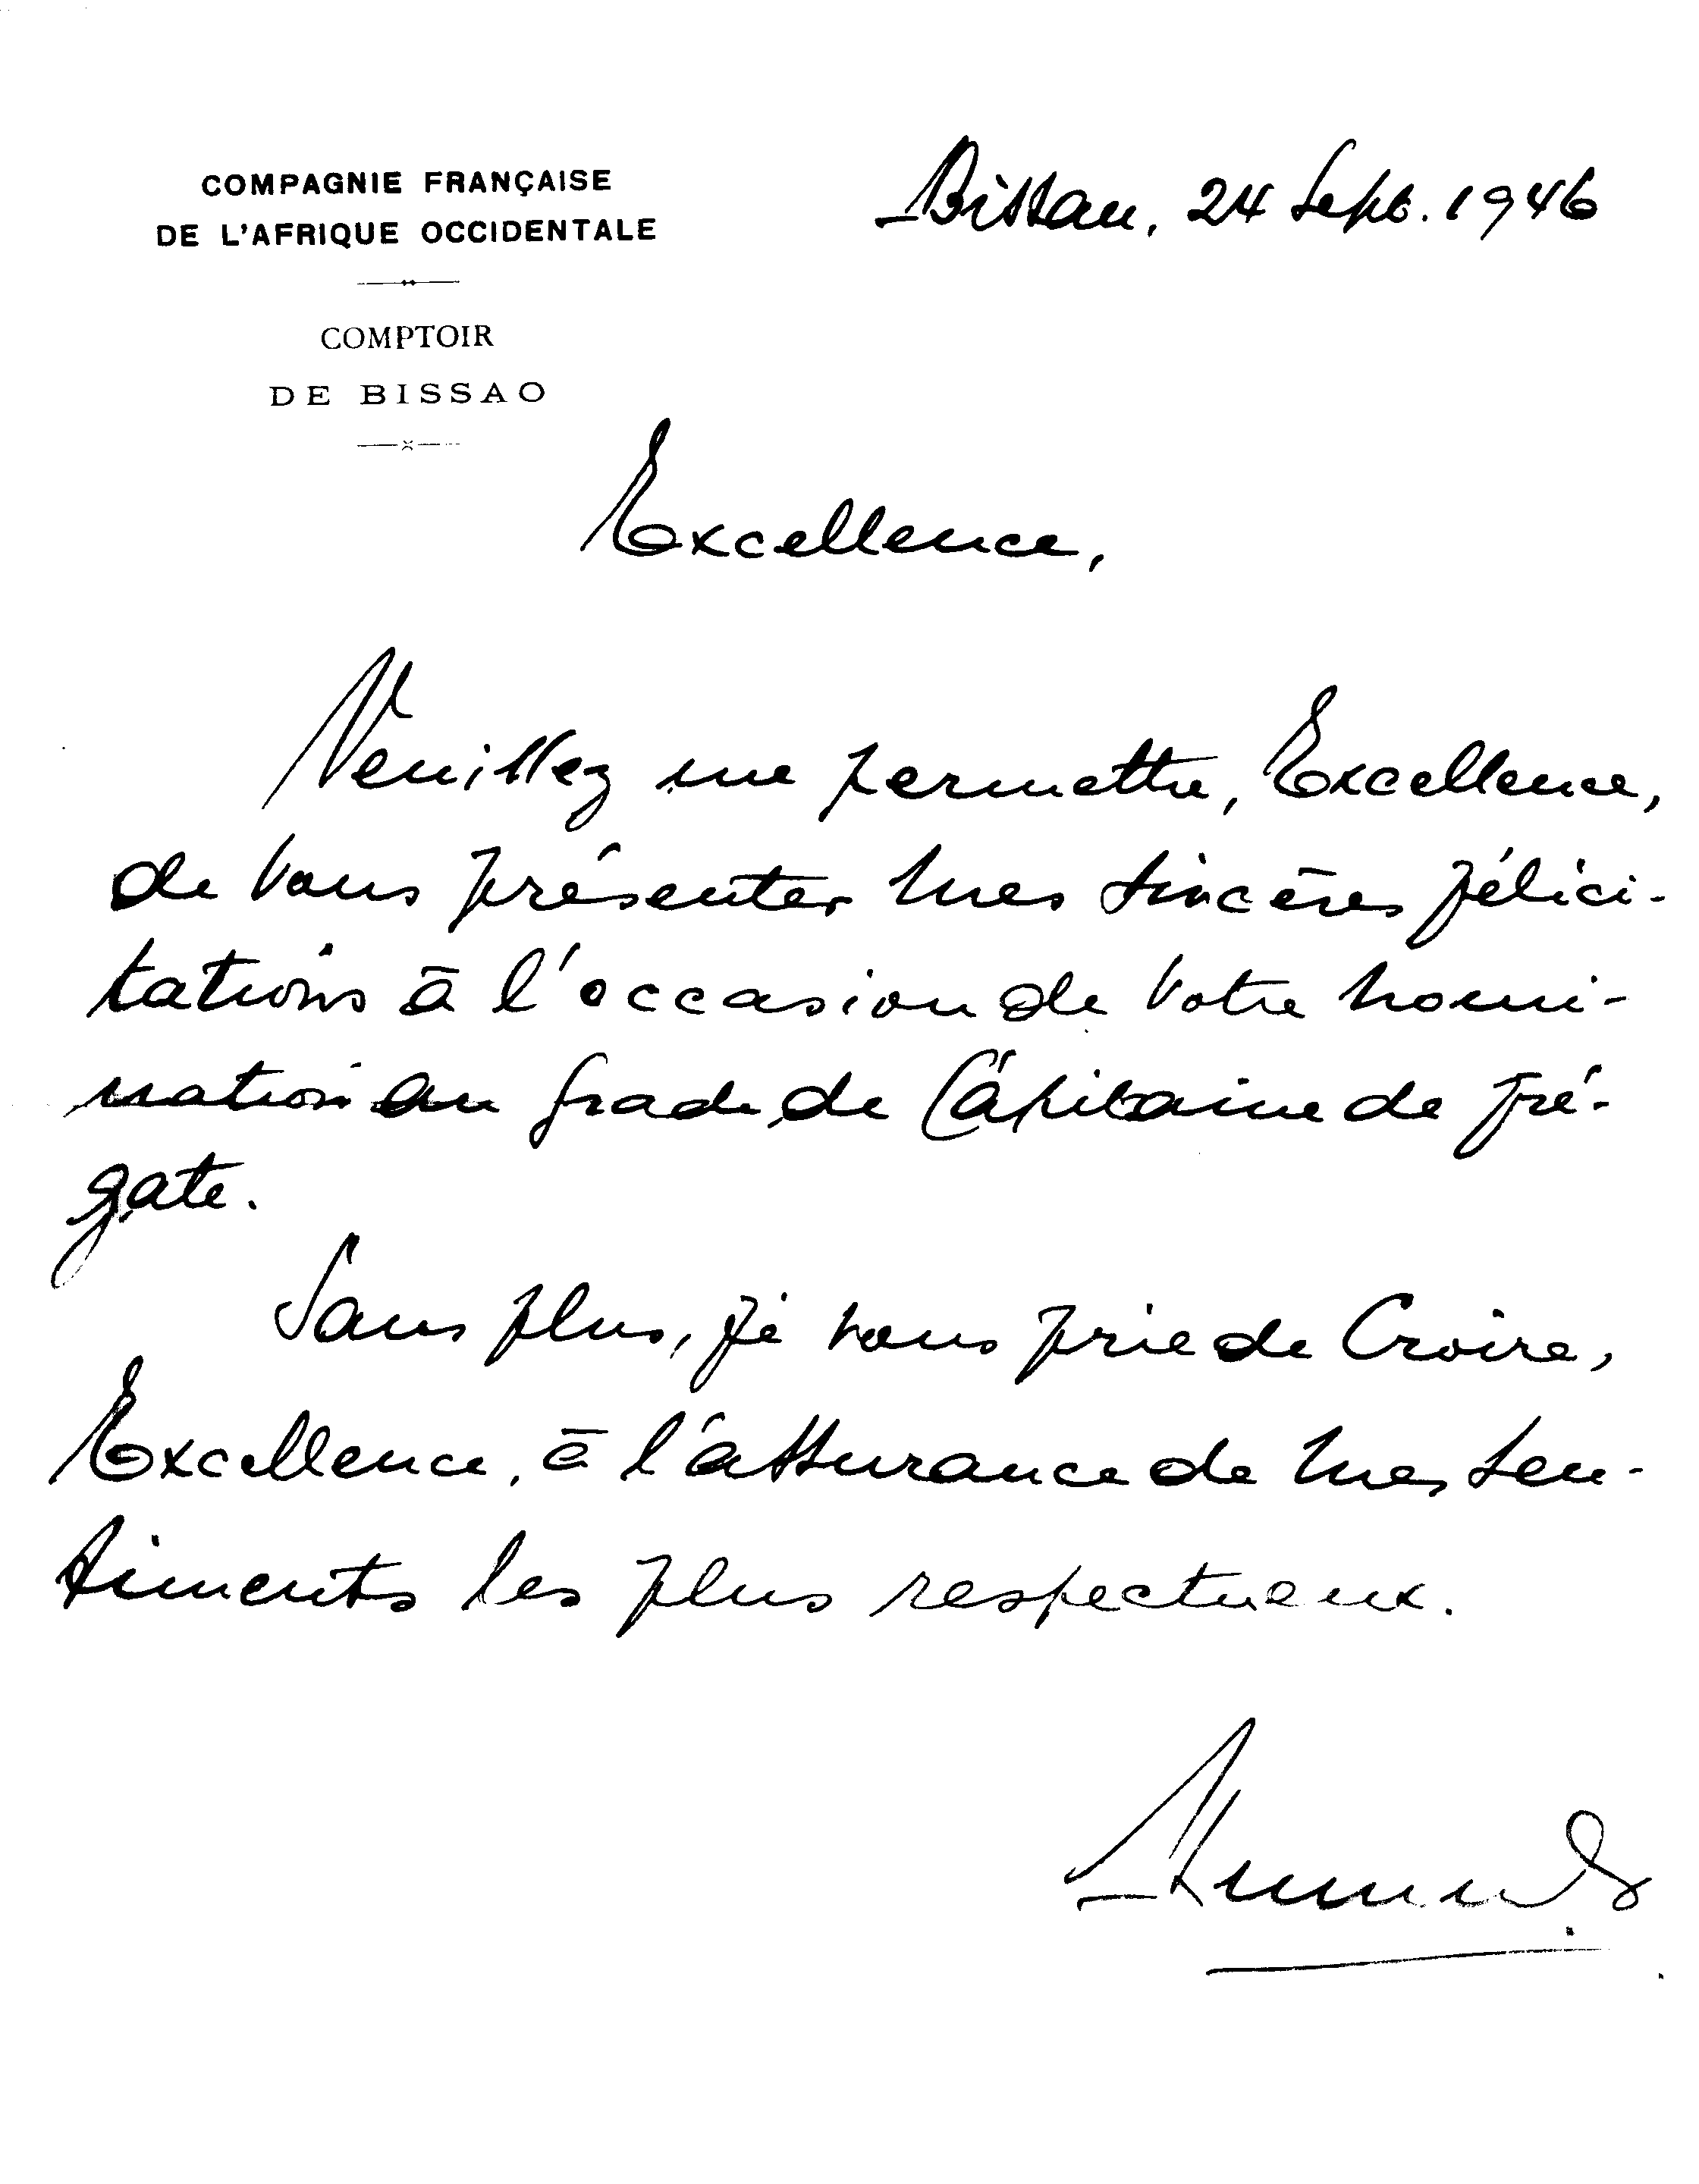 COMPAGNIE FRANÇAISE
DE L'AFRIQUE OCCIDENTALE
COMPTOIR
DE BISSAO
Bissau, 24 Sept. 1946
Excellence,
Veuillez me permettre, Excellence,
de vous présenter mes sincères félici-
tations à l'occasion de votre nomi-
nation au grade de Capitaine de fré-
gate.
Sans plus, je vous prie de Croire,
Excellence, à l'assurance de mes sen-
timents les plus respectueux.